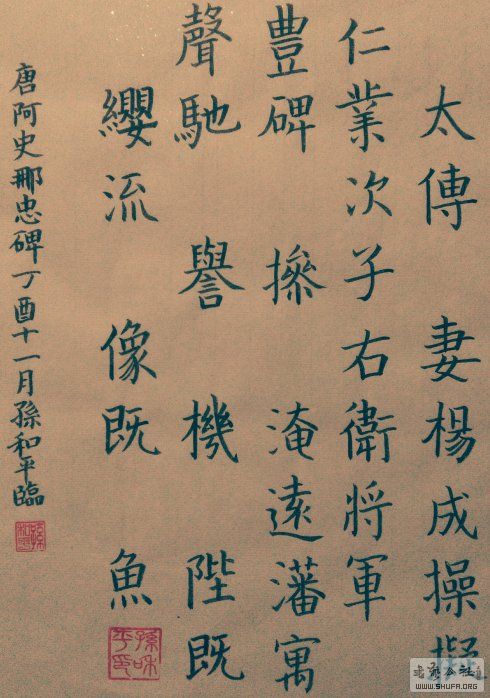 太傳 妻楊成操擬
仁業次子右衛將軍
豊碑 摻 淹遠藩寓
聲馳 譽 機 陛既
纓流 像既 魚
唐阿史那忠碑丁酉十一月孫和平臨
孫和平印
WWW.SHUFA.ORG